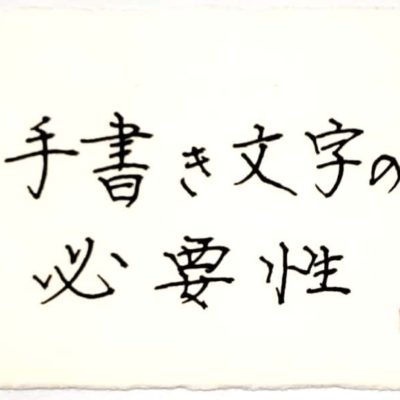 手書き文字の
必要性